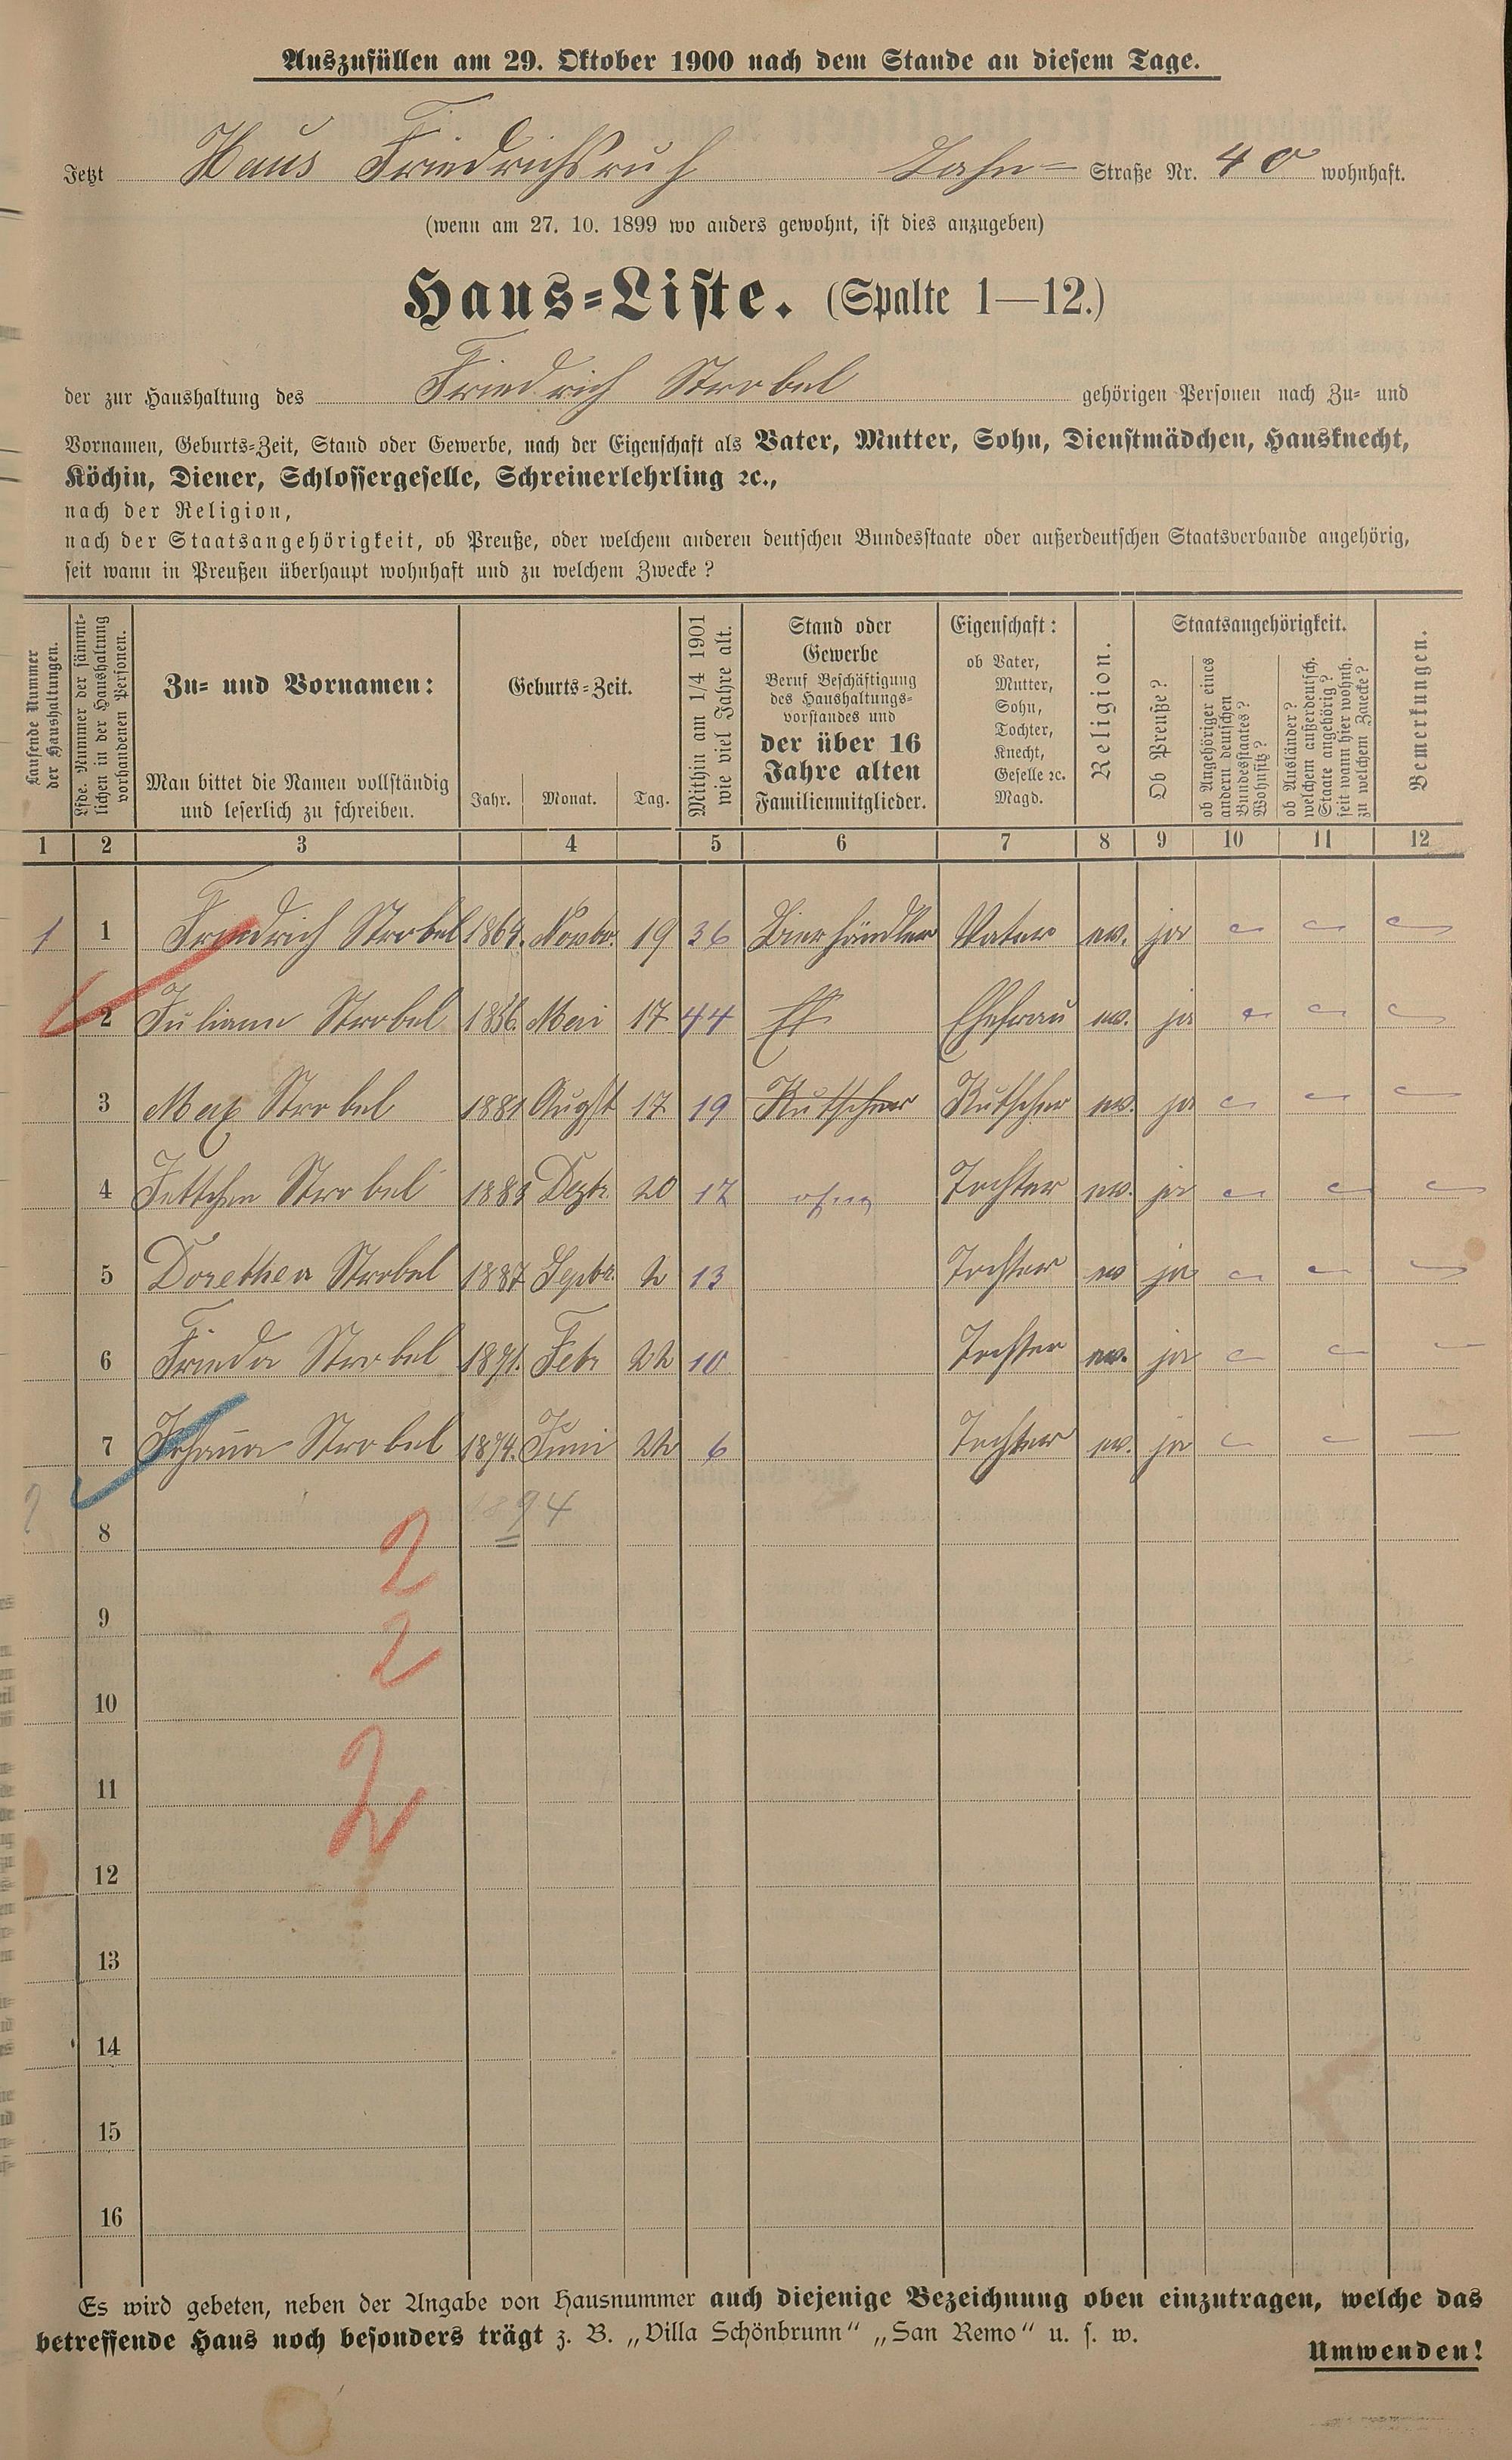 Auszufüllen am 29. Oktober 1900 nach dem Stande an diesem Tage.
Jetzt Haus Friedrichsruh Lahn- Straße Nr. 40 wohnhaft.
(wenn am 27. 10. 1899 wo anders gewohnt, ist dies anzugeben)
Haus-Liste. (Spalte 1—12.)
der zur Haushaltung des Friedrich Strobel gehörigen Personen nach Zu- und
Vornamen, Geburts-Zeit, Stand oder Gewerbe, nach der Eigenschaft als Vater, Mutter, Sohn, Dienstmädchen, Hausknecht,
Köchin, Diener, Schlossergeselle, Schreinerlehrling ꝛc.,
nach der Religion,
nach der Staatsangehörigkeit, ob Preuße, oder welchem anderen deutschen Bundesstaate oder außerdeutschen Staatsverbande angehörig,
seit wann in Preußen überhaupt wohnhaft und zu welchem Zwecke?
Laufende Nummer
der Haushaltungen.
Lfde. Nummer der sämmt-
lichen in der Haushaltung
vorhandenen Personen.
Zu- und Vornamen:
Man bittet die Namen vollständig
und leserlich zu schreiben.
Geburts-Zeit.
Jahr. Monat. Tag.
Mithin am 1/4 1901
wie viel Jahre alt.
Stand oder
Gewerbe
Beruf Beschäftigung
des Haushaltungs-
vorstandes und
der über 16
Jahre alten
Familienmitglieder.
Eigenschaft:
ob Vater,
Mutter,
Sohn,
Tochter,
Knecht,
Geselle ꝛc.
Magd.
Religion.
Staatsangehörigkeit.
Ob Preuße?
ob Angehöriger eines
andern deutschen
Bundesstaates?
Wohnsitz?
ob Ausländer?
welchem außerdeutsch.
Staate angehörig?
seit wann hier wohnh.
zu welchem Zwecke?
Bemerkungen.
1 2 3 4 5 6 7 8 9 10 11 12
1 1 Friedrich Strobel 1864. Novbr. 19 36 Bierhändler Vater ev. ja
2 Juliane Strobel 1856. Mai 17 44 Ehefrau ev. ja
3 Max Strobel 1881 August 17 19 Kutscher Kutscher ev. ja
4 Jettchen Strobel 1883 Dezbr. 20 17 ohne Tochter ev. ja
5 Dorethea Strobel 1887 Septbr. 2 13 Tochter ev ja
6 Frieda Strobel 1891. Febr 22 10 Tochter ev. ja
7 Johana Strobel 1894. Juni 22 6 Tochter ev. ja
1894
8 2
9 2
10
11 2
12
13
14
15
16
Es wird gebeten, neben der Angabe von Hausnummer auch diejenige Bezeichnung oben einzutragen, welche das
betreffende Haus noch besonders trägt z. B. „Villa Schönbrunn“ „San Remo“ u. s. w.
Umwenden!